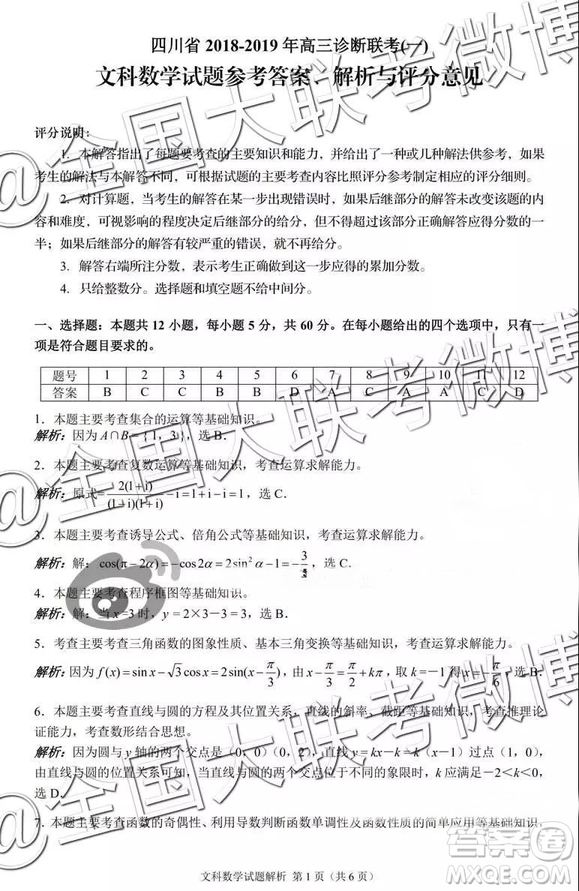 四川省 2018-2019 年高三诊断联考(一)
文科数学试题参考答案、解析与评分意见
评分说明：
1．本解答指出了每题要考查的主要知识和能力，并给出了一种或几种解法供参考，如果
考生的解法与本解答不同，可根据试题的主要考查内容比照评分参考制定相应的评分细则。
2．对计算题，当考生的解答在某一步出现错误时，如果后继部分的解答未改变该题的内
容和难度，可视影响的程度决定后继部分的给分，但不得超过该部分正确解答应得分数的一
半；如果后继部分的解答有较严重的错误，就不再给分．
3．解答右端所注分数，表示考生正确做到这一步应得的累加分数．
4．只给整数分．选择题和填空题不给中间分．
一、选择题：本题共 12 小题，每小题 5 分，共 60 分。在每小题给出的四个选项中，只有一
项是符合题目要求的。
题号 1 2 3 4 5 6 7 8 9 10 11 12
答案 B C C B B D C A A C D
1．本题主要考查集合的运算等基础知识．
解析：因为 A∩B={1，3}，选 B．
2．本题主要考查复数运算等基础知识，考查运算求解能力．
解析：原式=2(1+i)/(1-i)(1+i)-i=1+i-i=1，选 C．
3．本题主要考查诱导公式、倍角公式等基础知识，考查运算求解能力．
解析：解：cos(π-2α)=-cos2α=2sin²α-1=-3/，选 C．
4．本题主要考查程序框图等基础知识．
解析：解：当 x=3 时，y=2×3-3=3，选 B．
5．考查主要考查三角函数的图象性质、基本三角变换等基础知识．
解析：因为 f(x)=sin x-√3cos x=2sin(x-π/3)，由 x-π/3=π/2+kπ，取 k=-1 得 x=-π/6，选 B．
6．本题主要考查直线与圆的方程及其位置关系，直线的斜率、截距等基础知识，考查推理论
证能力，考查数形结合思想。
解析：因为圆与 y 轴的两个交点是（0，0）（0，2），直线 y=kx-k=k（x-1）过点（1，0），
由直线与圆的位置关系可知，当直线与圆的两个交点位于不同的象限时，k 应满足-2<k<0，
选 D．
7．本题主要考查函数的奇偶性、利用导数判断函数单调性及函数性质的简单应用等基础知识，
文科数学试题解析 第 1 页（共 6 页）
@全国大联考微博
@全国大联考微博
答案圈
MXQE.COM